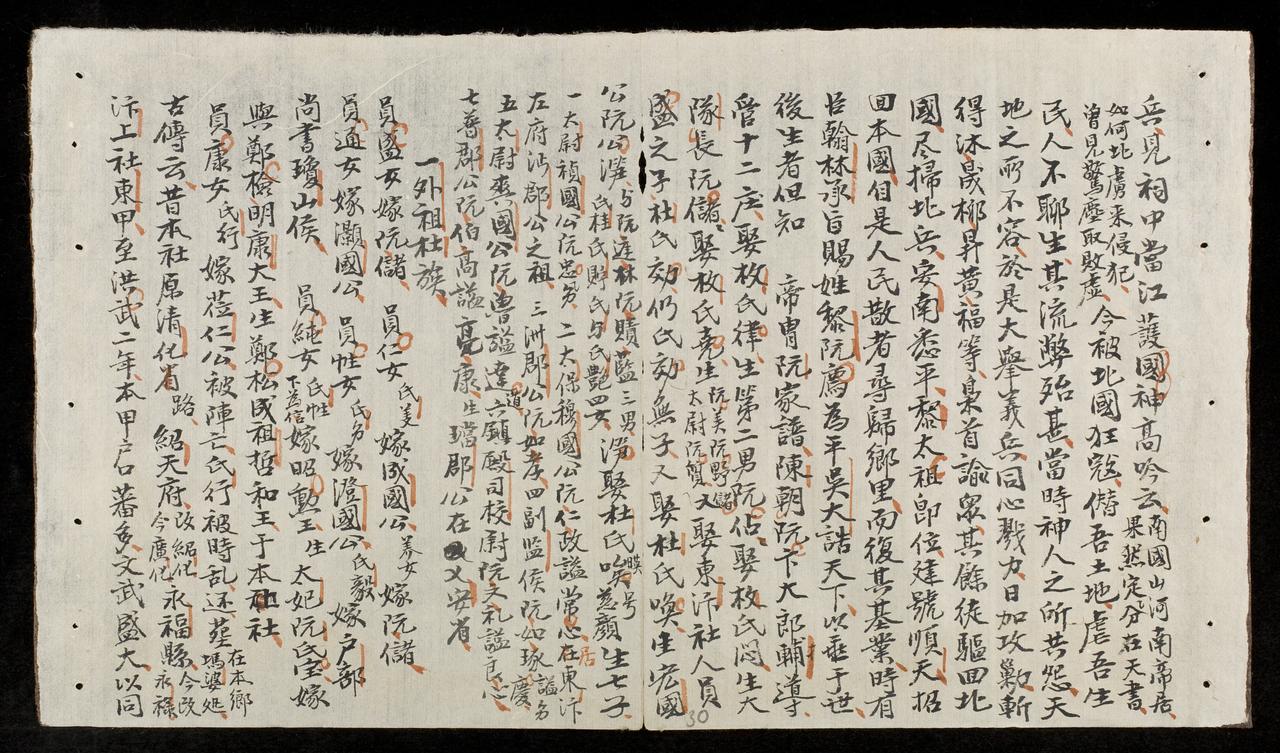 兵見祠中當江護國神高吟云南國山河南帝居
果然定分在天書
如何北虜來侵犯
曾見驚塵取敗虛今被北國狂寇僭吾土地虐吾生
民人不聊生其流弊殆甚當時神人之所共怨天
地之所不容於是大舉義兵同心戮力日加攻勦斬
得沐晟柳昇黃福等梟首諭眾其餘徒驅回北
國尽掃北兵安南悉平黎太祖即位建號順天招
回本國自是人民散者尋歸鄉里而復其基業時有
臣翰林承旨賜姓黎阮廌為平吳大誥天下以垂于世
後生者但知 帝冑阮家譜陳朝阮卞大郎輔導
管十二庄娶枚氏律生第二男阮佔娶枚氏悶生大
隊長阮儲娶枚氏堯生阮美阮野儲
太尉阮賀又娶東汴社人員
盛之子杜氏効仍氏効無子又娶杜氏喚生宏國
公阮公潩与阮廷林阮賾藍三男
氏桂氏貯氏与氏艷四女潩娶杜氏噗号慈顏生七子
一太尉禎國公阮忠另二太保穆國公阮仁政諡常心在東汴
左府沔郡公之祖三洲郡公阮如孝四副监侯阮如琢諡另慶
五太尉爽國公阮曹諡達道六鎮殿司校尉阮文礼諡良心
七普郡公阮伯高諡亮康生璫郡公在乂安省
一外祖杜族
員盛女嫁阮儲 員仁女氏美嫁成國公养女嫁阮儲
員通女嫁灝國公 員恠女氏另嫁澄國公氏毅嫁戶部
尚書瓊山侯 員純女氏恠
下為信嫁昭勳王生太妃阮氏宝嫁
與鄭檢明康大王生鄭松成祖哲和王于本社
員康女氏行嫁蒞仁公被陣亡氏行被時乱还塟在本鄉
塢婆処
古傳云昔本社原清化省路紹天府改紹化
今廣化永福縣今改
永祿
汴上社東甲至洪武二年本甲戶口蕃多文武盛大以同
30